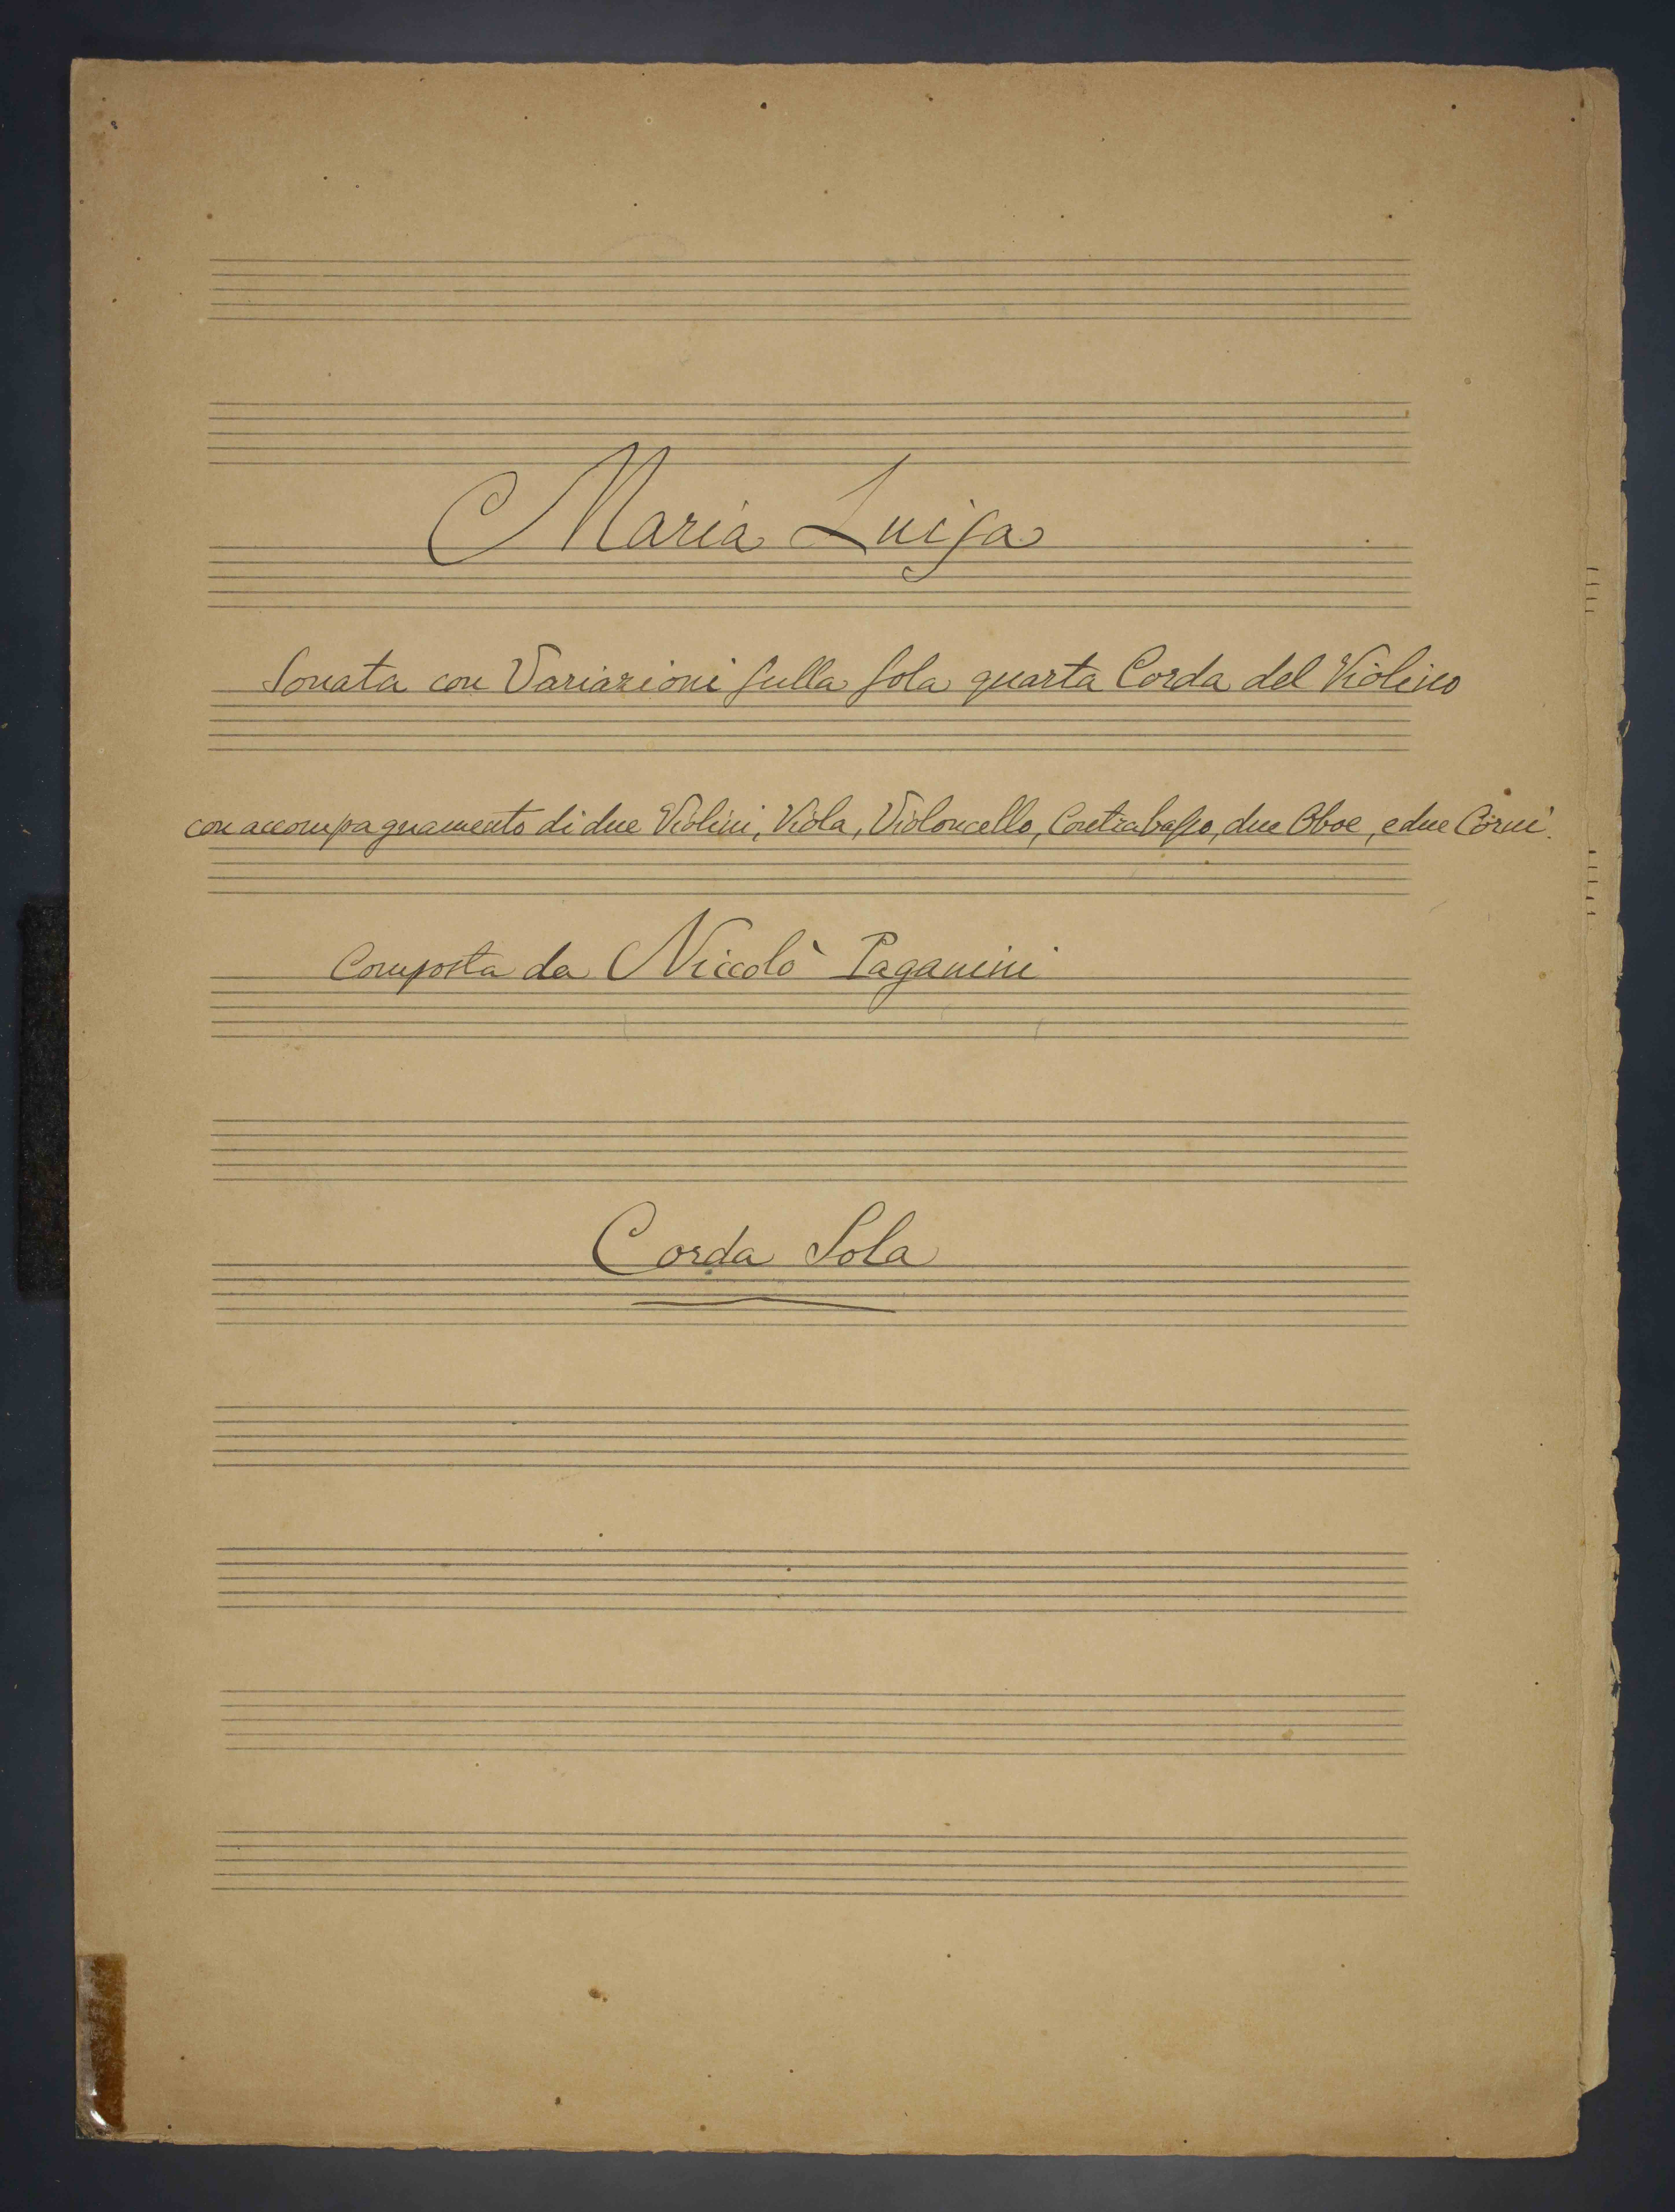 Maria Luisa
Sonata con Variazioni sulla sola quarta Corda del Violino
con accompagnamento di due Violini, Viola, Violoncello, Contrabasso, due Oboe, e due Corni.
Composta da Niccolò Paganini
Corda Sola